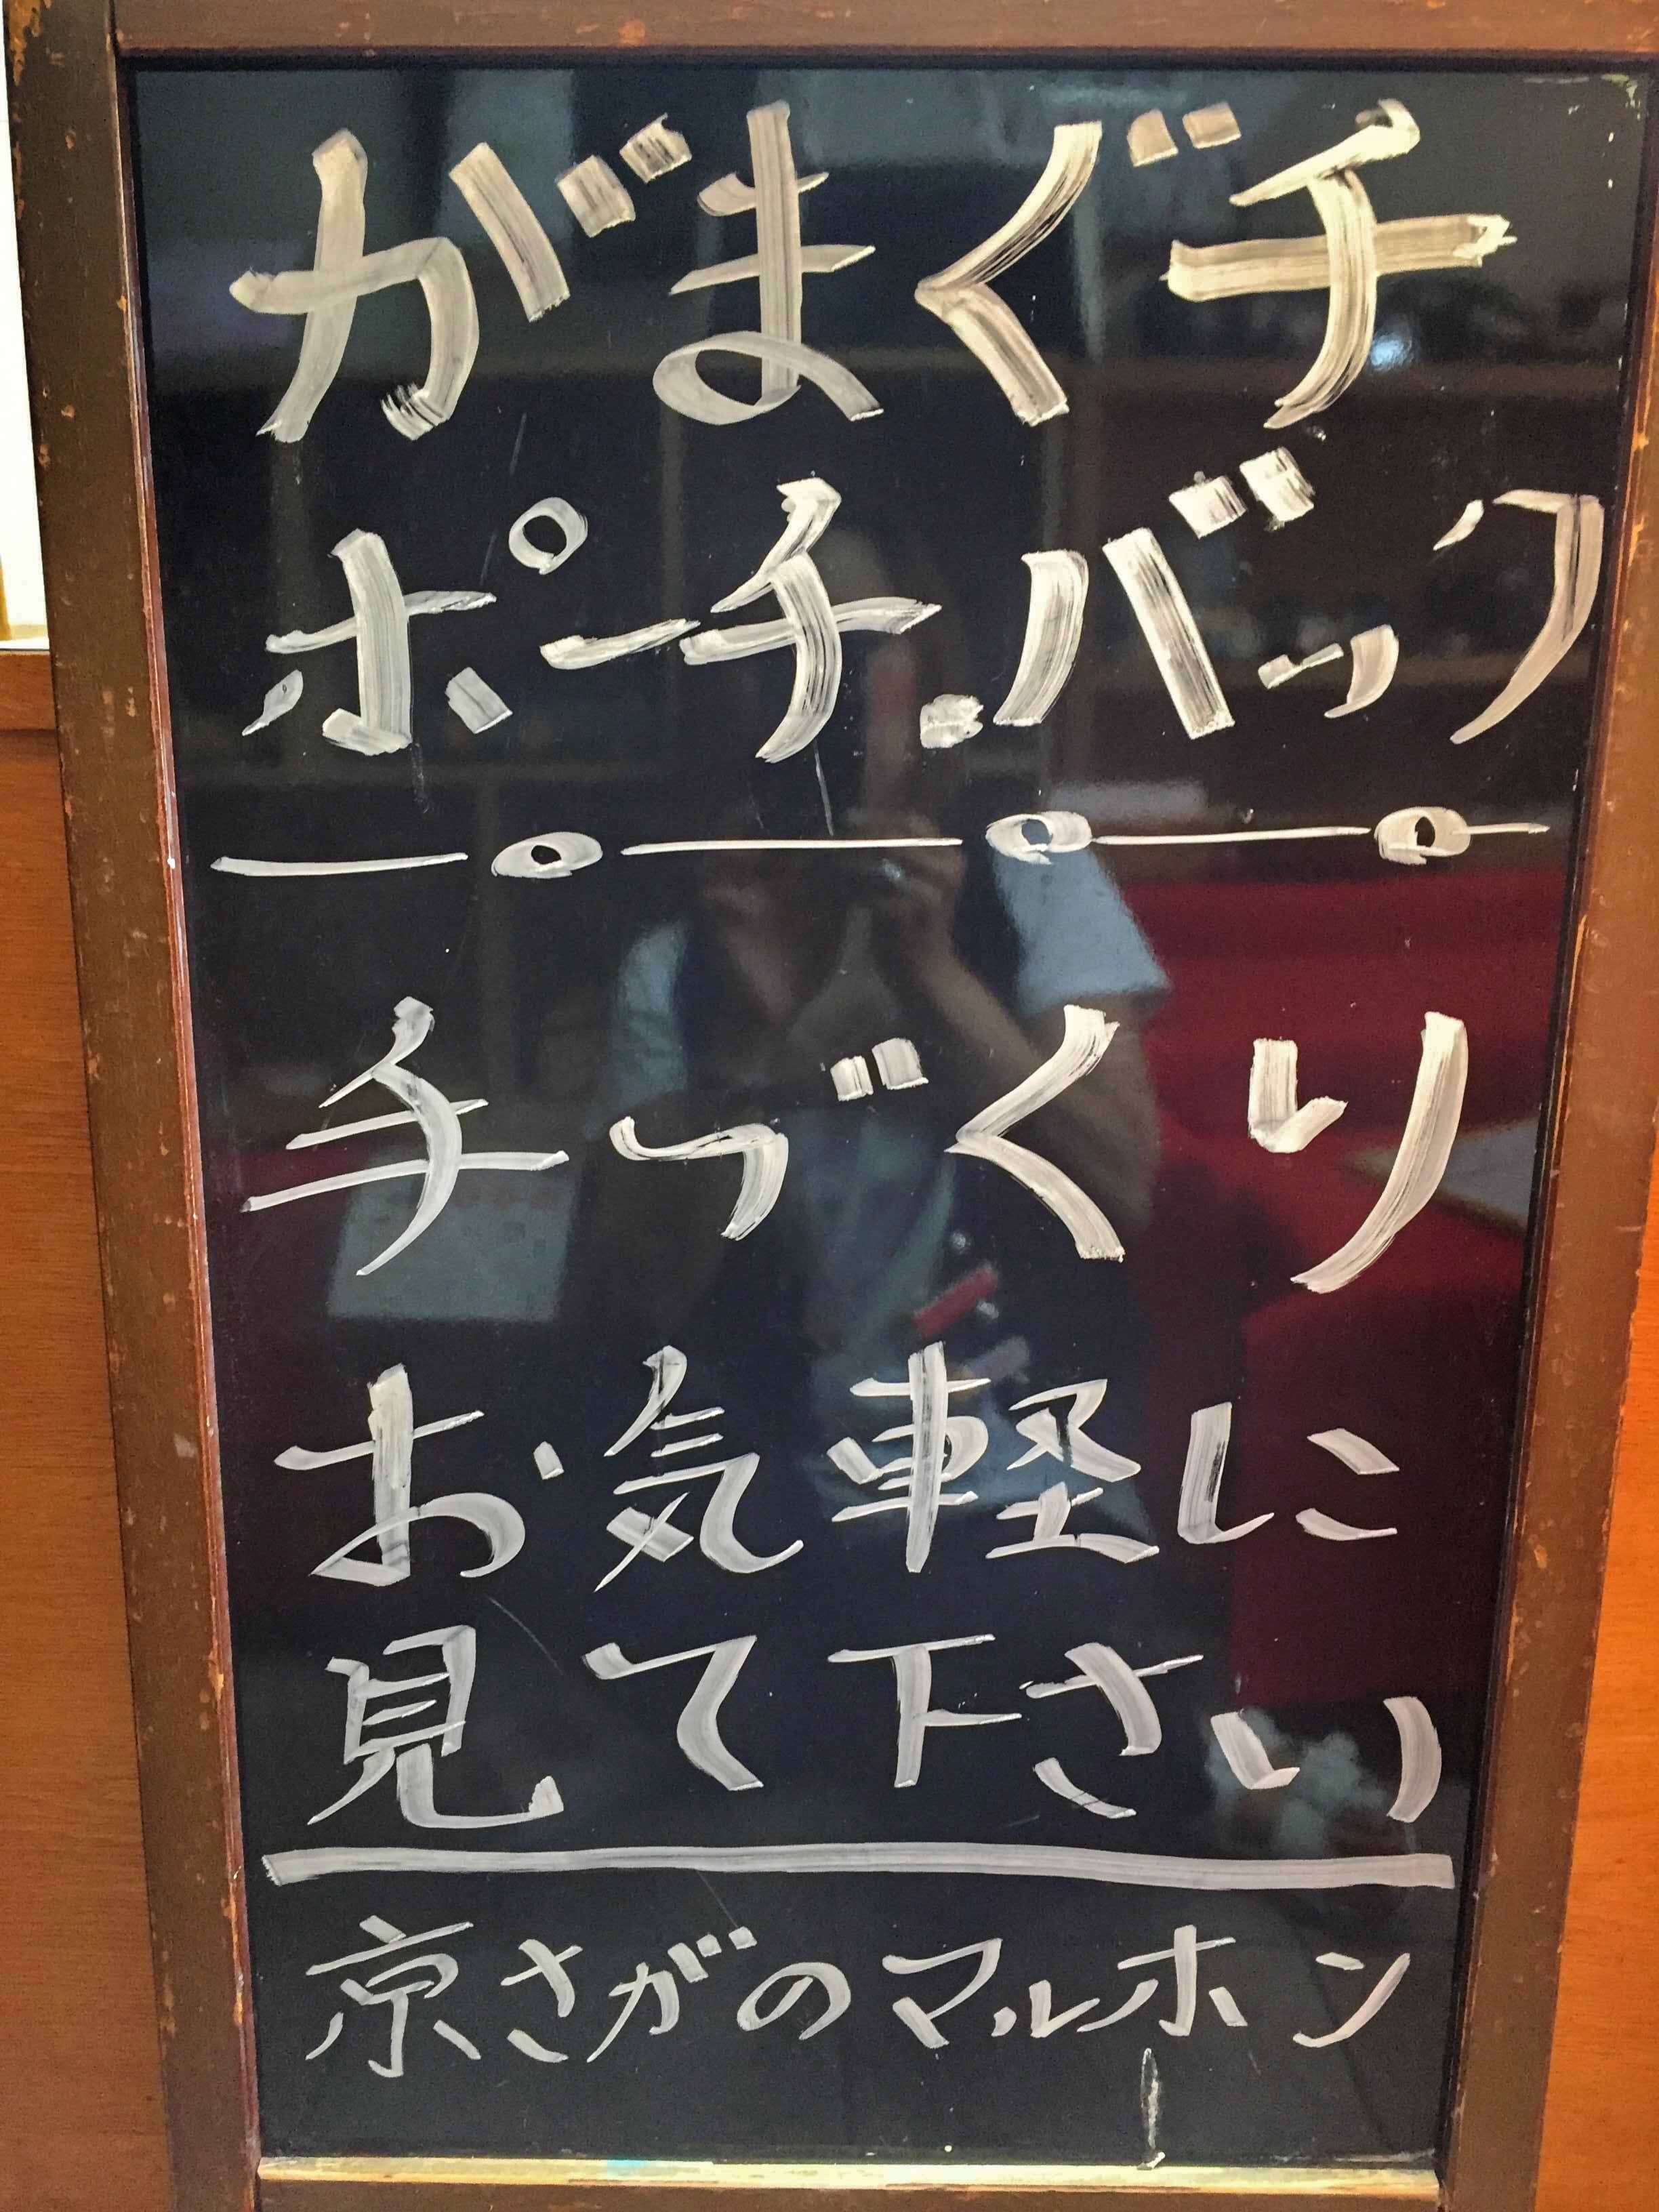 がまぐチ
ポーチ.バック
手づくり
お気軽に
見て下さい
京さがのマルホン